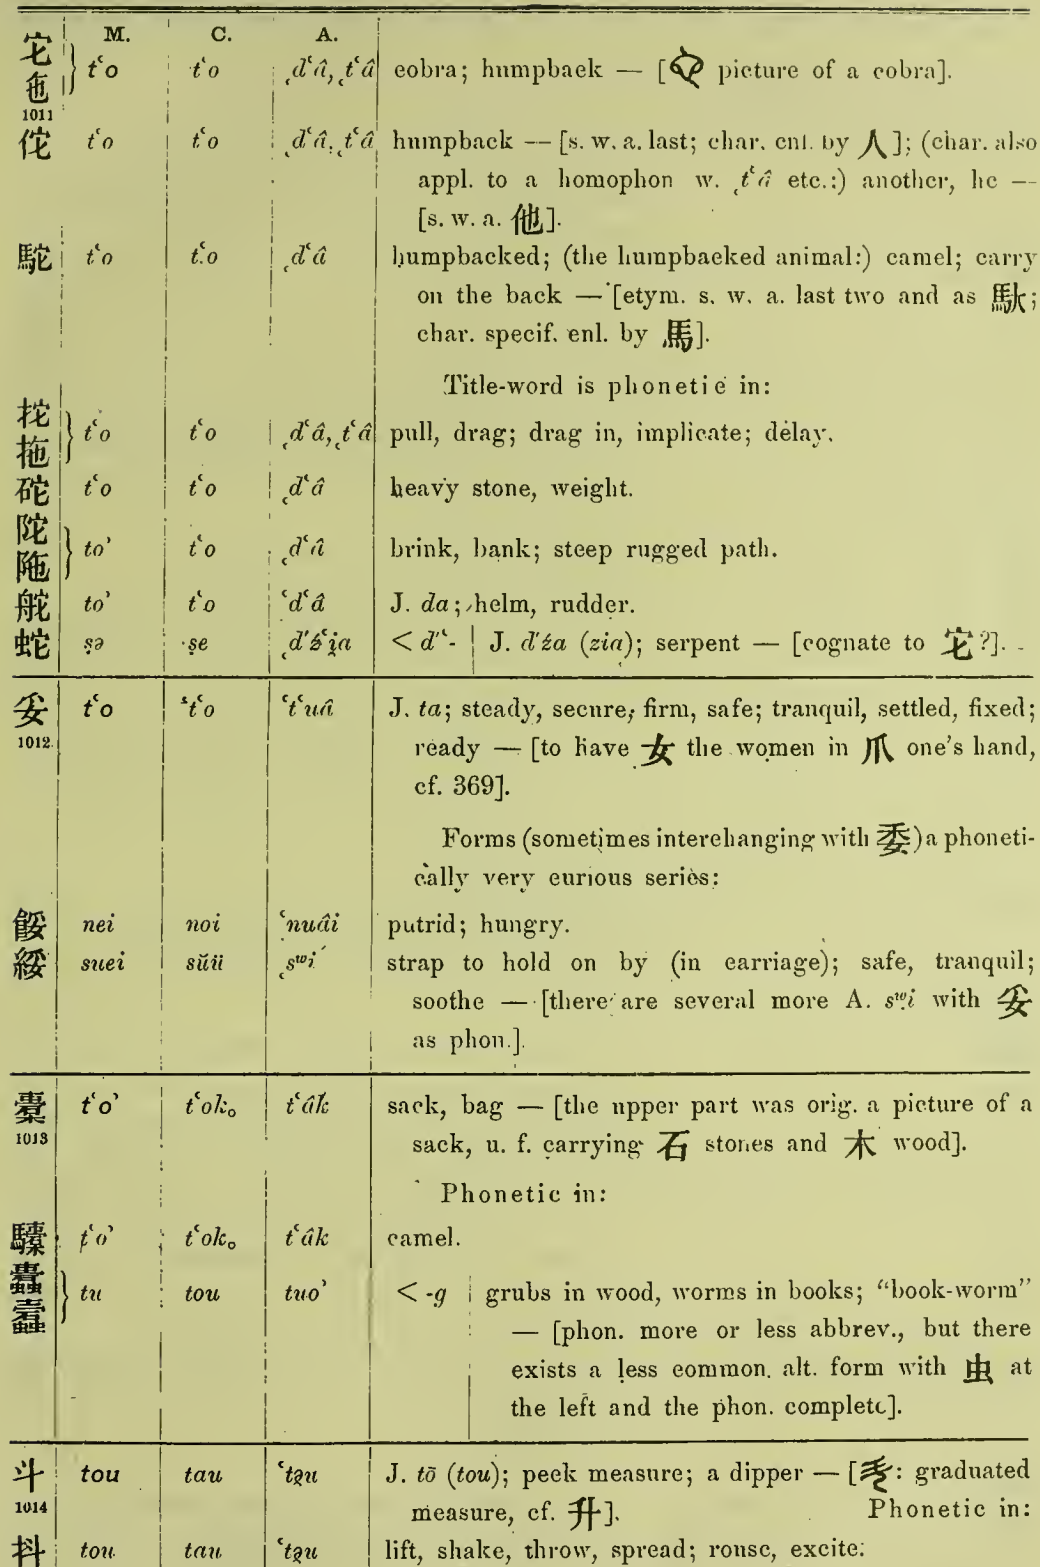 M. C. A.
它 t‘o t‘o ˛d‘â, ˛t‘â cobra; humpback — [ picture of a cobra].
㐌
1011
佗 t‘o t‘o ˛d‘â, ˛t‘â humpback — [s. w. a. last; char. enl. by 人]; (char. also
appl. to a homophon w. ˛t‘â etc.:) another, he —
[s. w. a. 他].
駝 t‘o t‘o ˛d‘â humpbacked; (the humpbacked animal:) camel; carry
on the back — [etym. s. w. a. last two and as 馱;
char. specif. enl. by 馬].
Title-word is phonetic in:
拕
拖 t‘o t‘o ˛d‘â, ˛t‘â pull, drag; drag in, implicate; delay.
砣 t‘o t‘o ˛d‘â heavy stone, weight.
陀
陁 to’ t‘o ˛d‘â brink, bank; steep rugged path.
舵 to’ t‘o ‘d‘â J. da; helm, rudder.
蛇 ṣə ṣe ˛d'ź‘i̯a < d'‘- | J. d'źa (zia); serpent — [cognate to 它?].
妥 t‘o ‘t‘o ‘t‘uâ J. ta; steady, secure, firm, safe; tranquil, settled, fixed;
1012. ready — [to have 女 the women in 爪 one's hand,
cf. 369].
Forms (sometimes interchanging with 委) a phoneti-
cally very curious series:
餒 nei noi ‘nuâi putrid; hungry.
綏 suei süü ˛sʷi strap to hold on by (in carriage); safe, tranquil;
soothe — [there are several more A. sʷi with 妥
as phon.].
橐 t‘o’ t‘ok₀ t‘âk sack, bag — [the upper part was orig. a picture of a
1013 sack, u. f. carrying 石 stones and 木 wood].
Phonetic in:
驝 t‘o’ t‘ok₀ t‘âk camel.
蠹
螙 tu tou tuo’ < -g | grubs in wood, worms in books; “book-worm”
— [phon. more or less abbrev., but there
exists a less common alt. form with 虫 at
the left and the phon. complete].
斗 tou tau ‘tə̯u J. tō (tou); peck measure; a dipper — [ : graduated
1014 measure, cf. 升]. Phonetic in:
抖 tou tau ‘tə̯u lift, shake, throw, spread; rouse, excite.